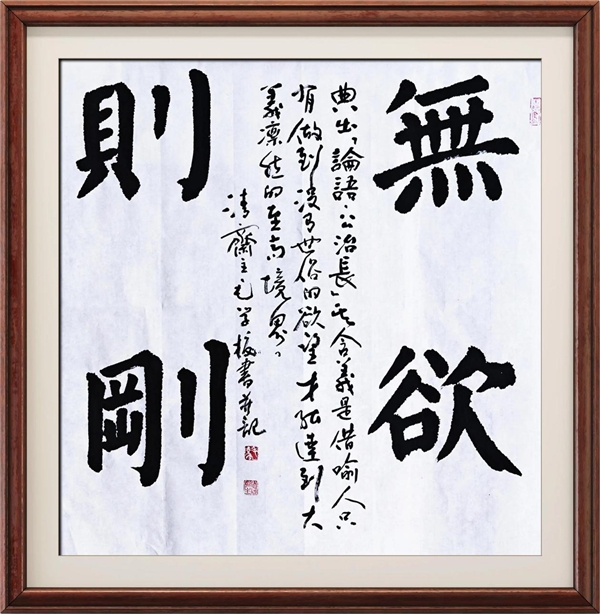 無欲
典出「論語·公治長」其含義是借喻人只
有做到沒有世俗的欲望才能達到大
義凜然的至高境界。
清齋主毛学梅書并記
則剛